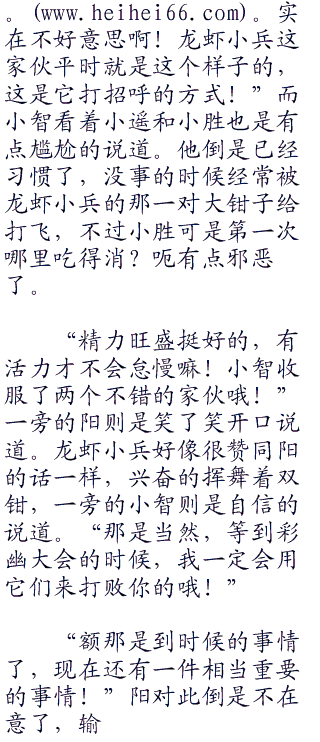 。(www.heihei66.com)。实
在不好意思啊！龙虾小兵这
家伙平时就是这个样子的，
这是它打招呼的方式！”而
小智看着小遥和小胜也是有
点尴尬的说道。他倒是已经
习惯了，没事的时候经常被
龙虾小兵的那一对大钳子给
打飞，不过小胜可是第一次
哪里吃得消？呃有点邪恶
了。
“精力旺盛挺好的，有
活力才不会怠慢嘛！小智收
服了两个不错的家伙哦！”
一旁的阳则是笑了笑开口说
道。龙虾小兵好像很赞同阳
的话一样，兴奋的挥舞着双
钳，一旁的小智则是自信的
说道。“那是当然，等到彩
幽大会的时候，我一定会用
它们来打败你的哦！”
“额那是到时候的事情
了，现在还有一件相当重要
的事情！”阳对此倒是不在
意了，输